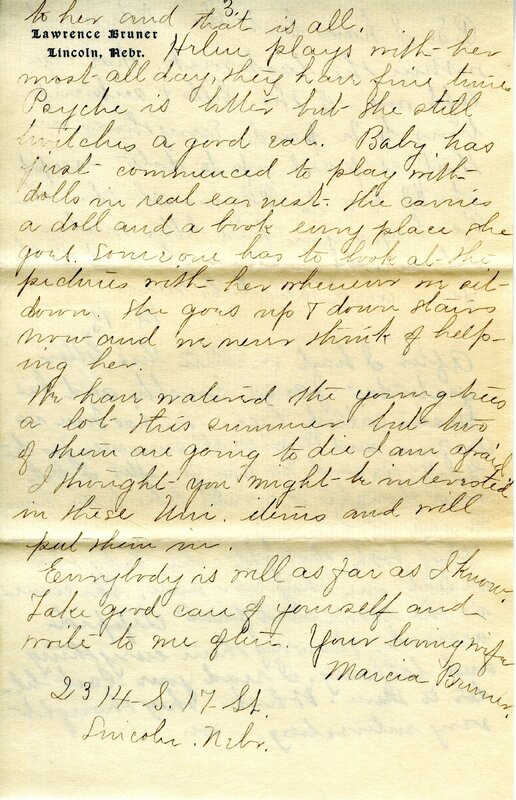 3.
to her and that is all.
Lawrence Bruner
Lincoln, Nebr.
Helen plays with her
most all day, they have fine times
Psyche is better but she still
twitches a good eal. Baby has
just commenced to play with
dolls in real earnest. She carries
a doll and a book every place she
goes. Some one has to look at the
pictures with her whenever we sit
down. She goes up & down stairs
now and we never think of help-
ing her.
We have watered the young trees
a lot this summer but two
of them are going to die I am afraid
I thought you might be interested
in these Uni. items and will
put them in.
Everybody is well as far as I know.
Take good care of yourself and
write to me often. Your loving wife
Marcia Bruner.
2314-S. 17-St.
Lincoln. Nebr.